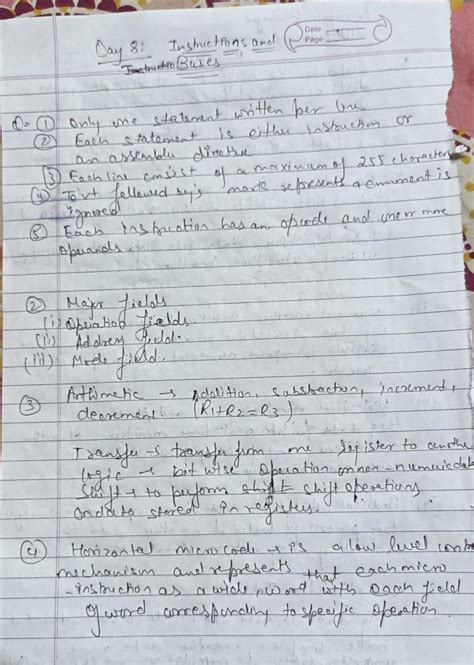 Date
Page
Day 8: Instructions and
Buses
Q- ① Only one statement written per line
② Each statement is either instruction or
an assembly directive
③ Each line consist of a maximum of 255 characters
④ Text followed by ; mark represents a comment is
ignored
⑤ Each instruction has an opcode and one or more
operands.
② Major Fields
(i) Operation Fields.
(ii) Address Field.
(iii) Mode field.
③ Arithmatic → Addition, substraction, increment,
decrement. (R1+R2=R3)
Transfer → transfer from one register to another
logic → bit wise operation on non-numeric data
Shift → to perform shift operations
on data stored in register.
④ Horizontal microcode → is a low level control
mechanism and represents that each micro
-instruction as a wide word with each field
of word corresponding to specific operation